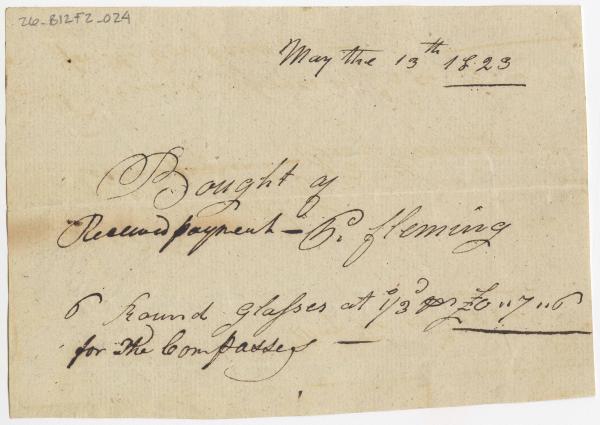 26-B12F2-024
May the 13th 1823
Bought of
Received payment — P. Fleming
6 Round Glasses at 1/3d pr £0"7"6
for The Compasses —